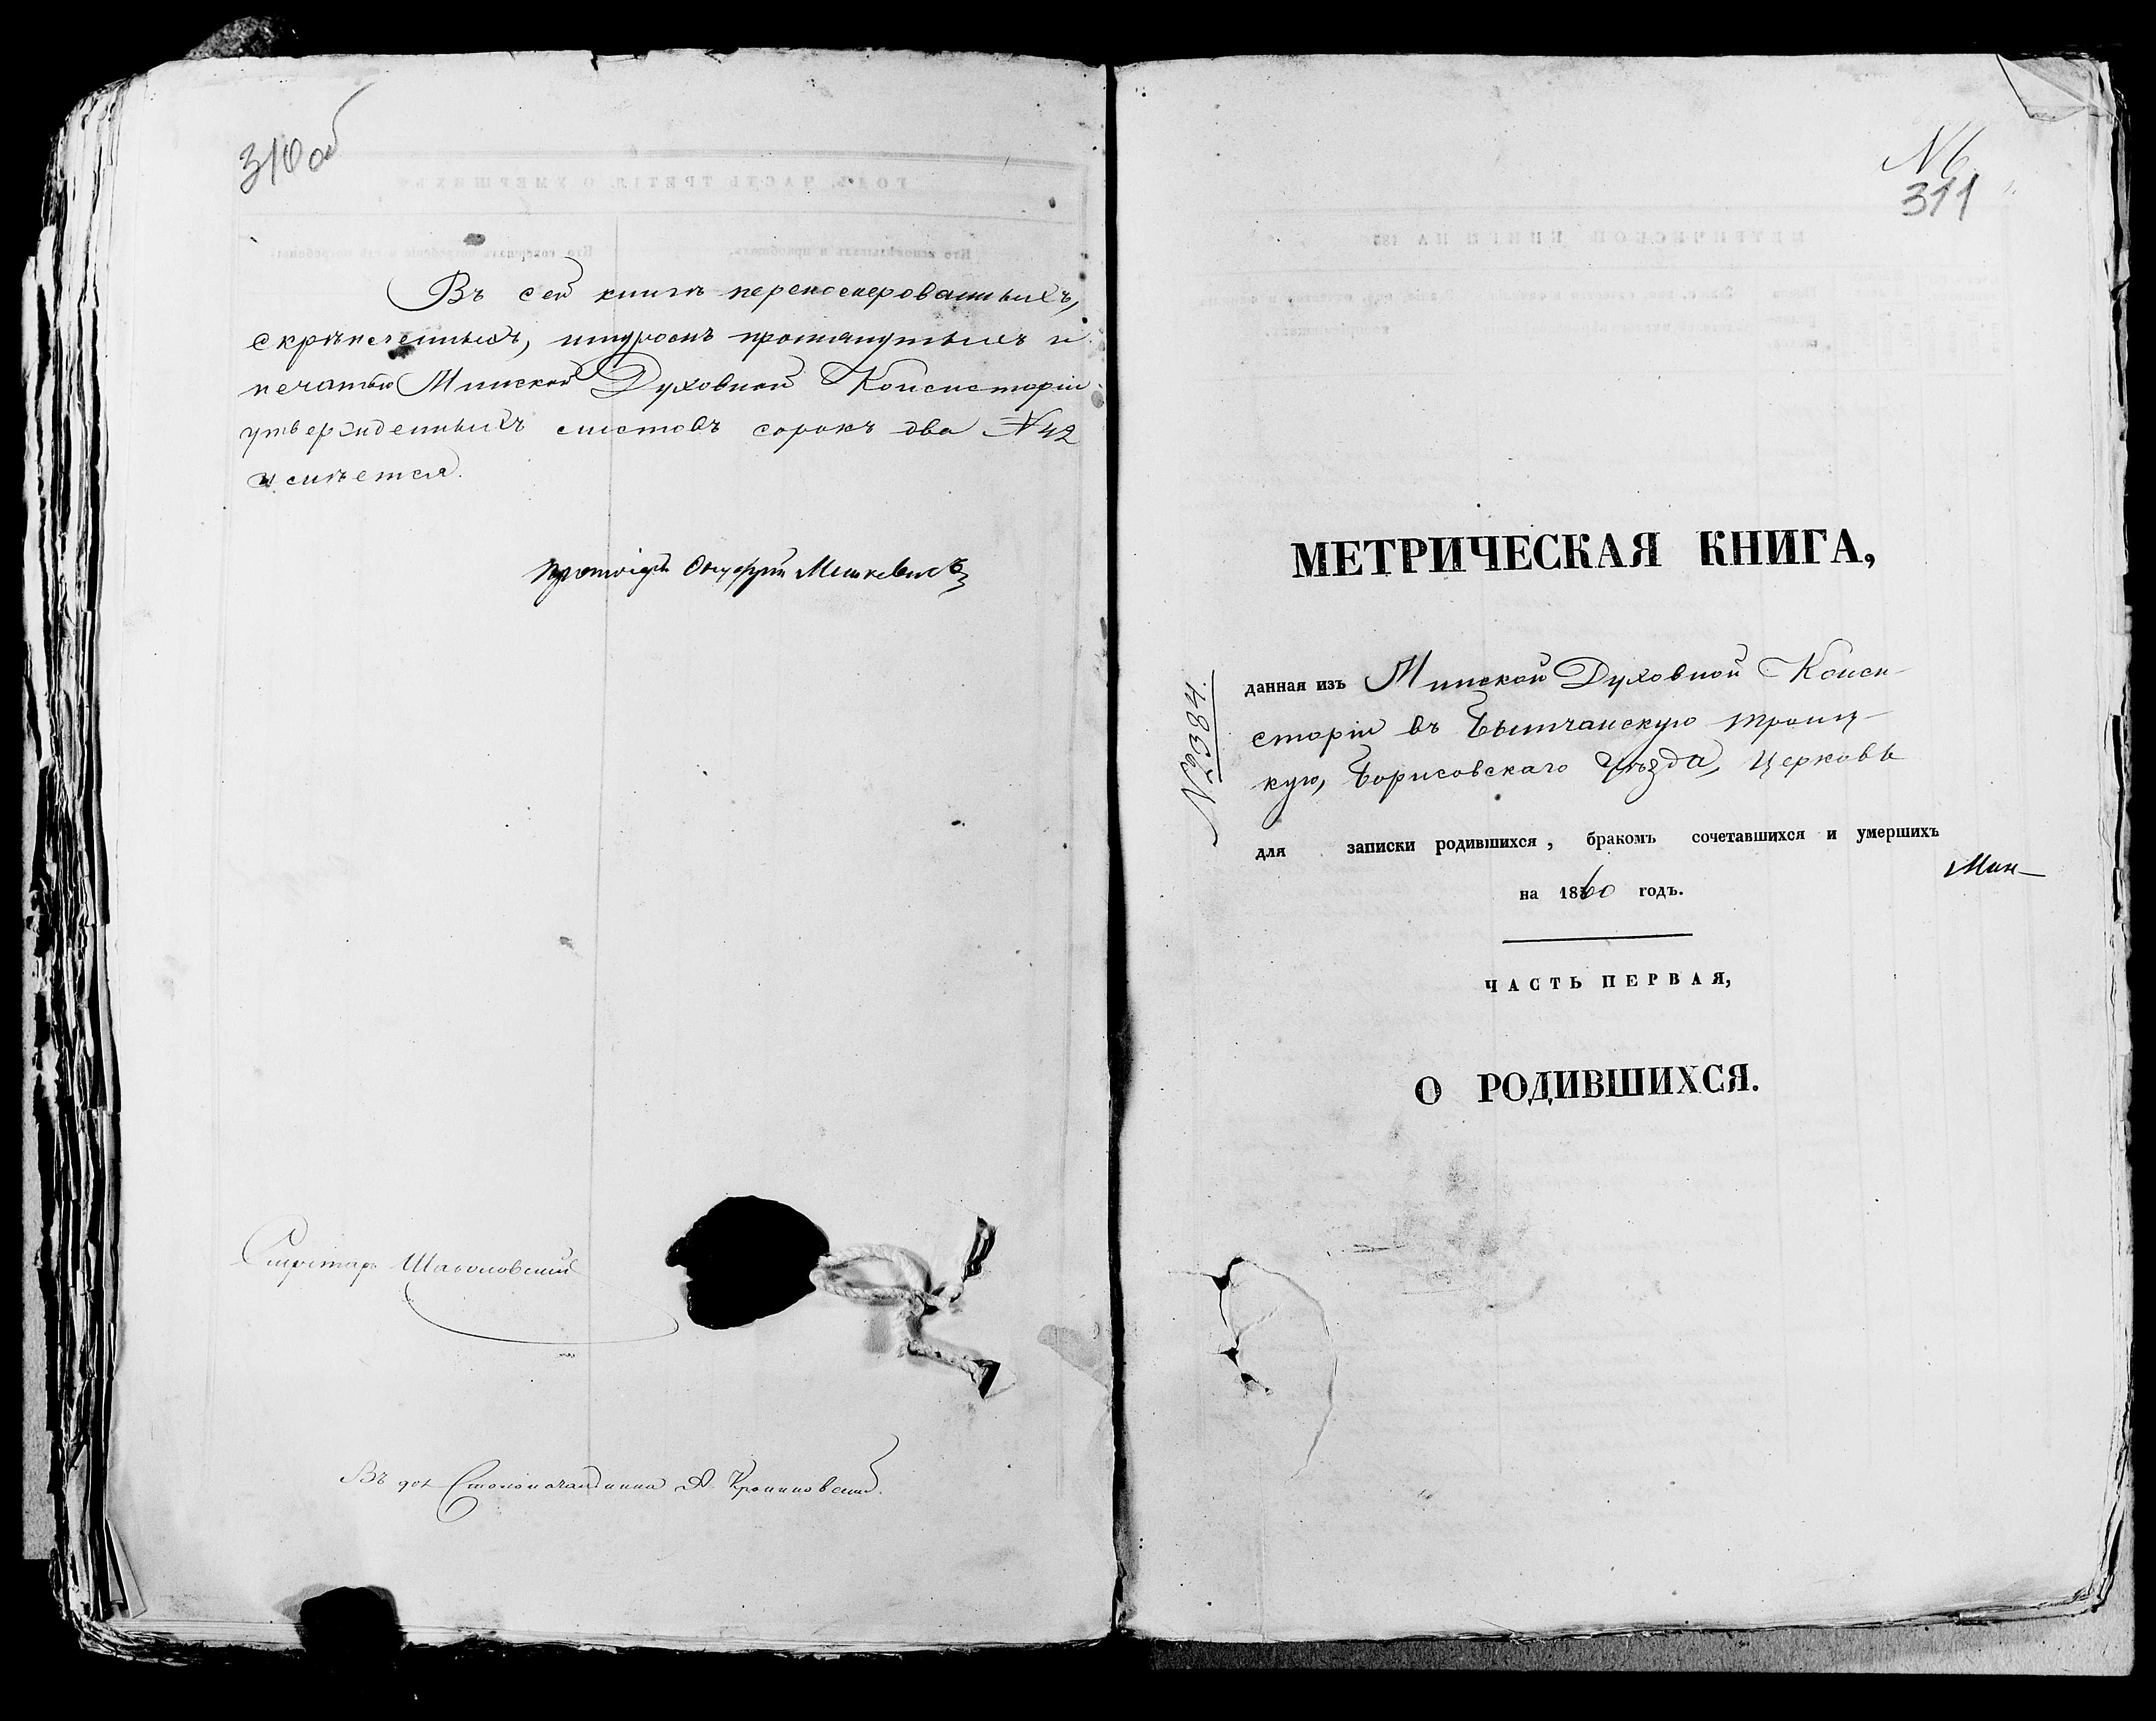 310 об
Въ сей книгѣ перенумерованныхъ,
скрѣпленныхъ, шнуромъ протянутыхъ и
печатью Минской Духовной Консисторіи
утвержденныхъ листовъ сорокъ два №42
имѣется.
Протоіерей Онуфрій
Секретарь
Въ дол. Столоначальника А.
N6
311
МЕТРИЧЕСКАЯ КНИГА,
данная изъ Минской Духовной Конси-
сторіи въ Бытчанскую Троиц-
кую, Борисовскаго Уѣзда, Церковь
№384.
для записки родившихся, бракомъ сочетавшихся и умершихъ
Мин-
на 1860 годъ.
ЧАСТЬ ПЕРВАЯ,
О РОДИВШИХСЯ.